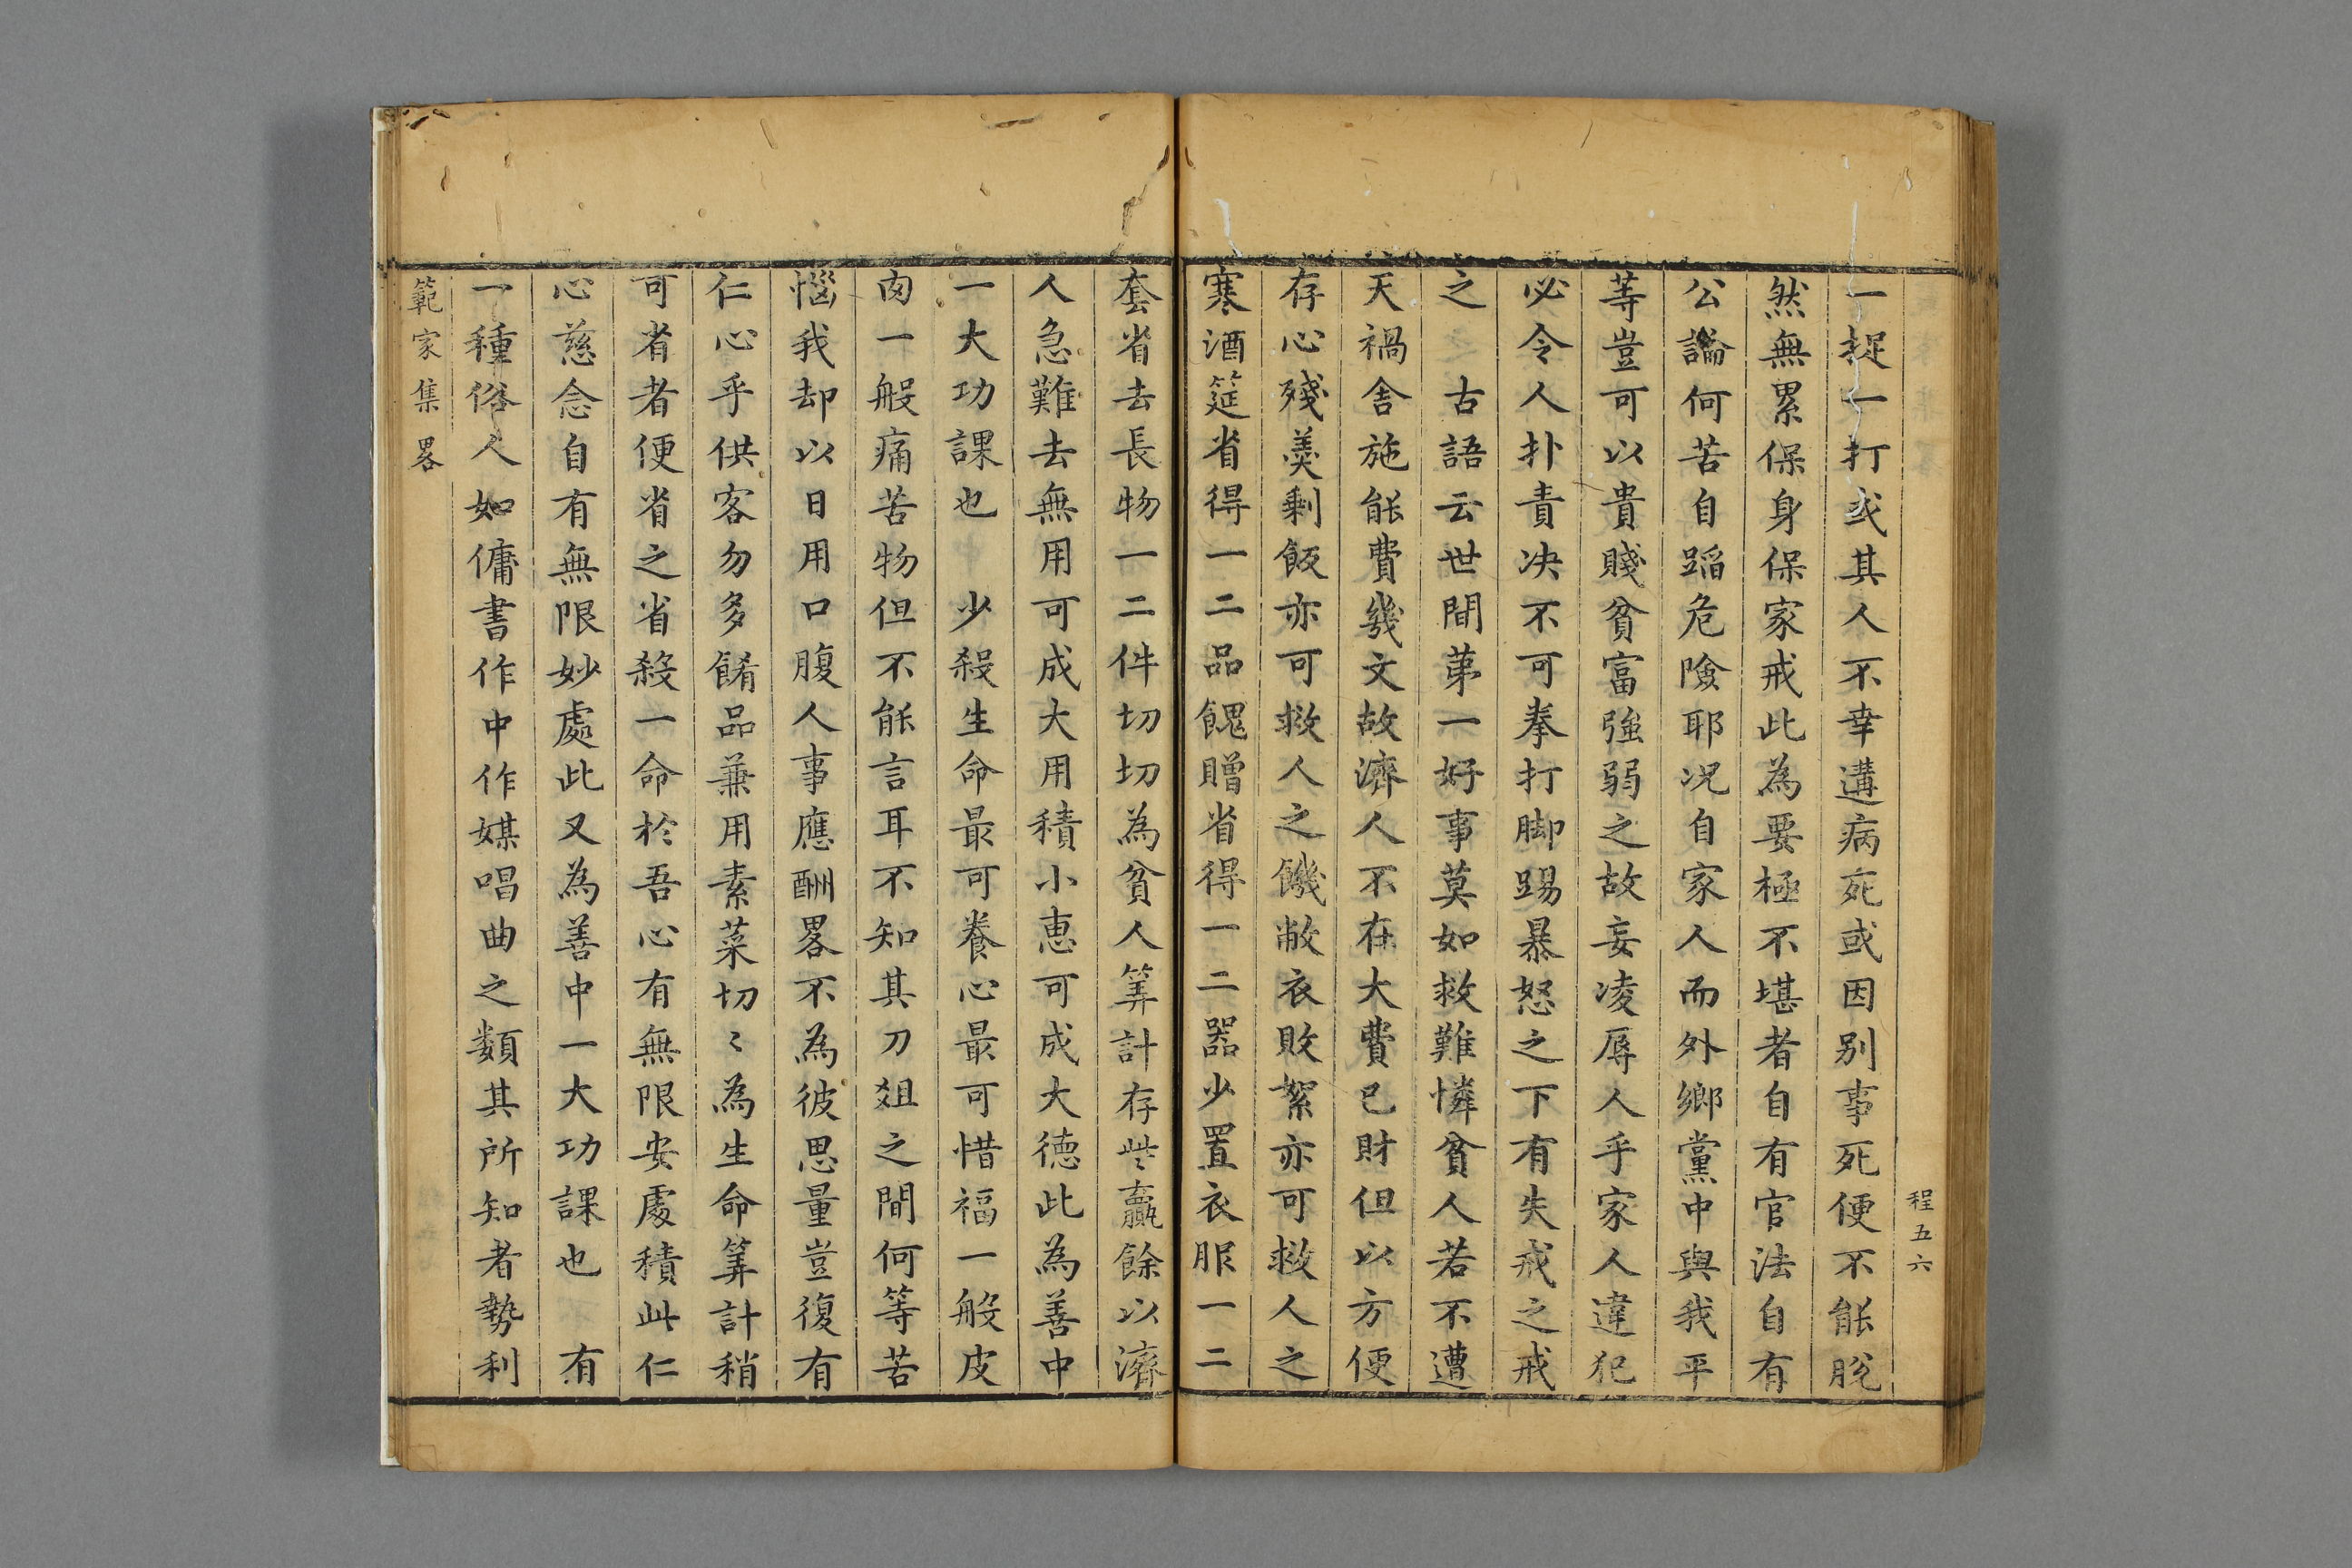 程五六
一捉一打或其人不幸遘病死或因别事死便不能脫
然無累保身保家戒此為要極不堪者自有官法自有
公論何苦自蹈危險耶况自家人而外鄉黨中與我平
等豈可以貴賤貧富強弱之故妄凌辱人乎家人違犯
必令人扑責决不可拳打脚踢暴怒之下有失戒之戒
之　古語云世間苐一好事莫如救難憐貧人若不遭
天禍舍施能費幾文故濟人不在大費己財但以方便
存心殘羮剩飯亦可救人之饑敝衣敗絮亦可救人之
寒酒筵省得一二品餽贈省得一二器少置衣服一二
套省去長物一二件切切為貧人筭計存些贏餘以濟
人急難去無用可成大用積小惠可成大德此為善中
一大功課也　少殺生命最可養心最可惜福一般皮
肉一般痛苦物但不能言耳不知其刀俎之間何等苦
惱我却以日用口腹人事應酬畧不為彼思量豈復有
仁心乎供客勿多餚品兼用素菜切〻為生命筭計稍
可省者便省之省殺一命於吾心有無限安處積此仁
心慈念自有無限妙處此又為善中一大功課也　有
一種俗人如傭書作中作媒唱曲之類其所知者勢利
範家集畧